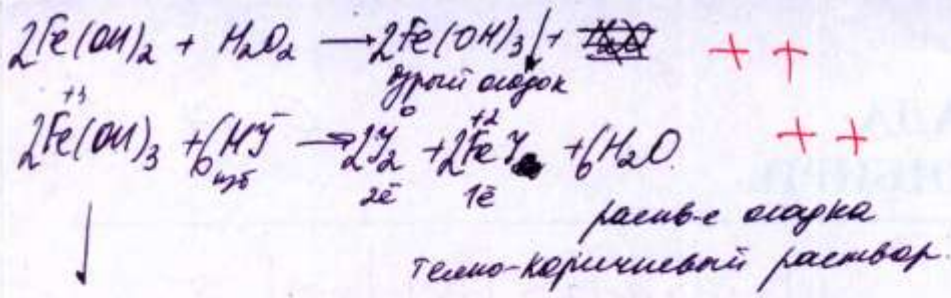 2Fe(OH)2 + H2O2 → 2Fe(OH)3↓ +
бурый осадок
+3 0 +2
2Fe(OH)3 + 6HJ → 2J2 + 2FeJ2 + 6H2O.
изб
2ē 1ē
раств-е осадка
темно-коричневый раствор.